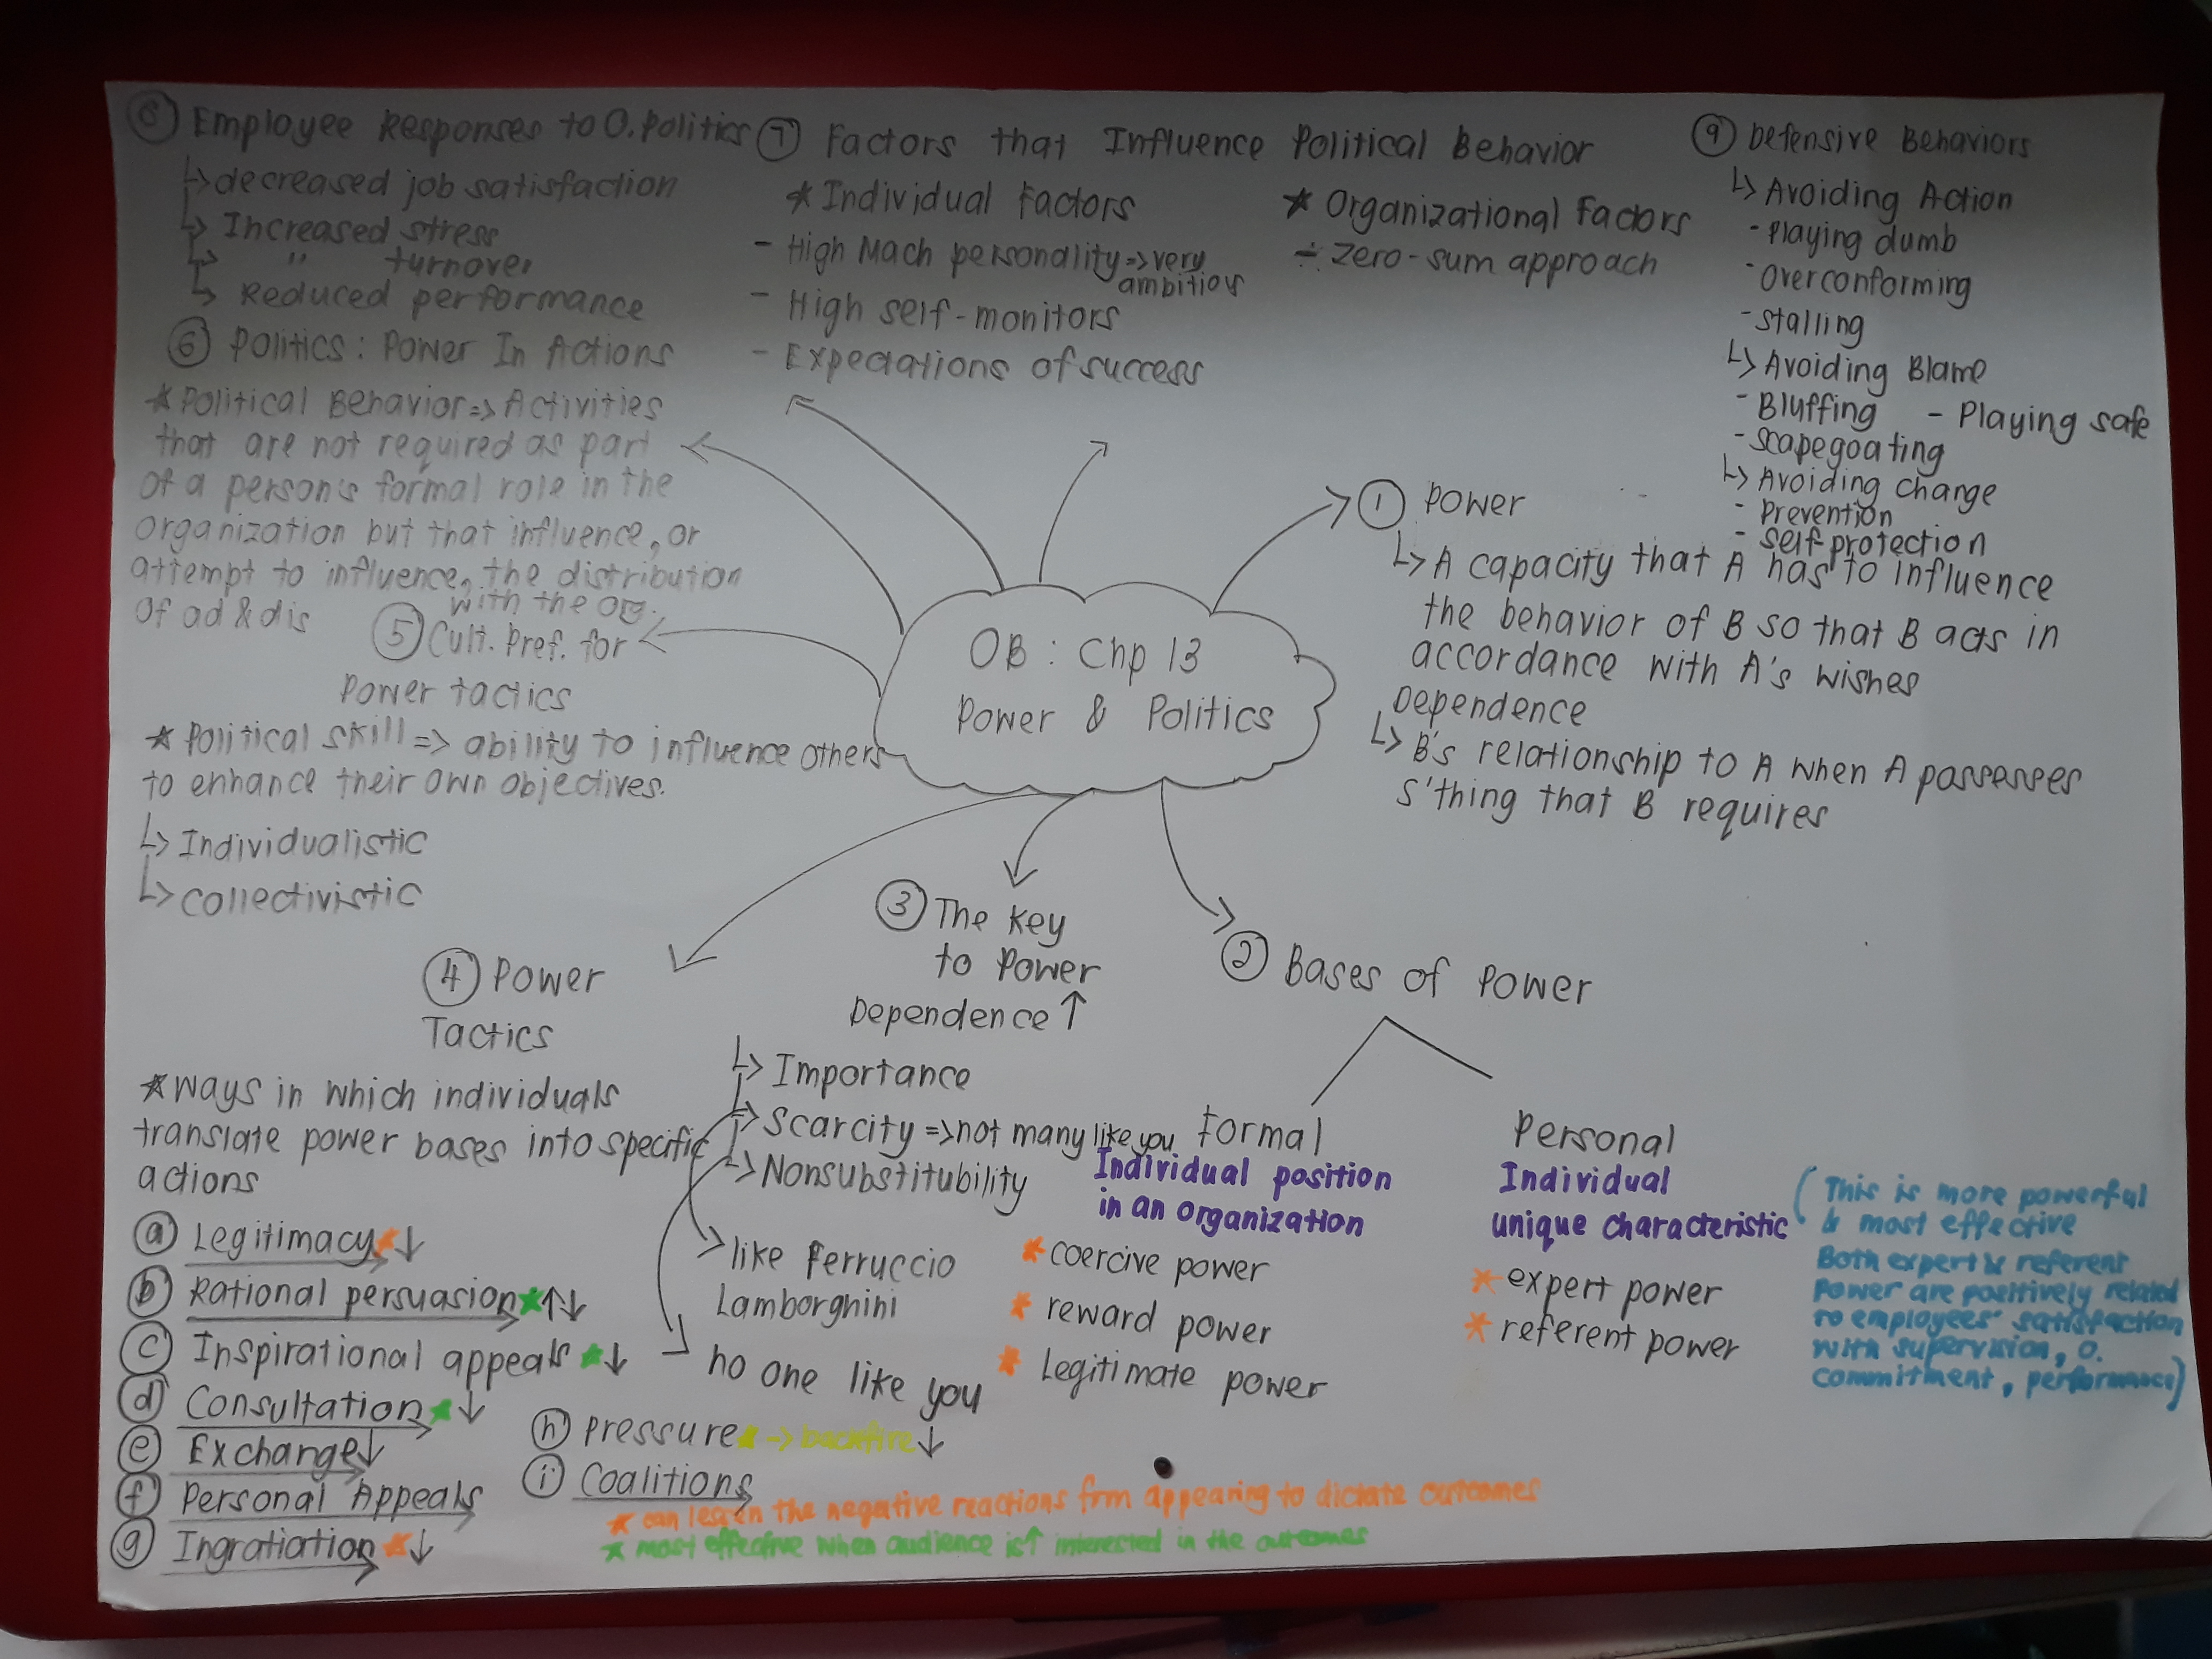 OB : Chp 13
Power & Politics
① Power
↳ A capacity that A has to influence
the behavior of B so that B acts in
accordance with A's wishes
Dependence
↳ B's relationship to A when A possesses
s'thing that B requires
② Bases of Power
Formal
Individual position
in an organization
* coercive power
* reward power
* Legitimate power
Personal
Individual
unique characteristic
* expert power
* referent power
(This is more powerful
& most effective
Both expert & referent
Power are positively related
to employees' satisfaction
with supervision, o.
commitment, performance)
③ The Key
to Power
Dependence ↑
↳ Importance
↳ Scarcity => not many like you
↳ Nonsubstitubility
like Ferruccio
Lamborghini
no one like you
④ Power
Tactics
* Ways in which individuals
translate power bases into specific
actions
ⓐ Legitimacy * ↓
ⓑ Rational persuasion * ↑↓
ⓒ Inspirational appeals * ↓
ⓓ Consultation * ↓
ⓔ Exchange ↓
ⓕ Personal Appeals
ⓖ Ingratiation * ↓
ⓗ Pressure * -> backfire ↓
ⓘ Coalitions
* can lessen the negative reactions frm appearing to dictate outcomes
* most effective when audience is ↑ interested in the outcomes
⑤ Cult. Pref. for
Power tactics
* Political skill => ability to influence others
to enhance their own objectives.
↳ Individualistic
↳ Collectivistic
⑥ Politics : Power In Actions
* Political Behavior => Activities
that are not required as part
of a person's formal role in the
organization but that influence, or
attempt to influence, the distribution
of ad & dis with the org.
⑦ Factors that Influence Political Behavior
* Individual Factors
- High Mach personality => very
ambitiov
- High self-monitors
- Expectations of success
* Organizational Factors
- Zero-sum approach
⑧ Employee Responses to O. Politics
↳ decreased job satisfaction
↳ Increased stress
↳ " turnover
↳ Reduced performance
⑨ Defensive Behaviors
↳ Avoiding Action
- Playing dumb
- Overconforming
- Stalling
↳ Avoiding Blame
- Bluffing - Playing safe
- Scapegoating
↳ Avoiding change
- Prevention
- Self-protection